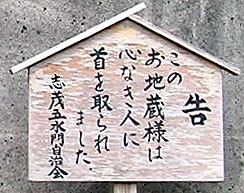 告
この
お地蔵様は
心なき人に
首を取られ
ました.
志茂五水門自治会